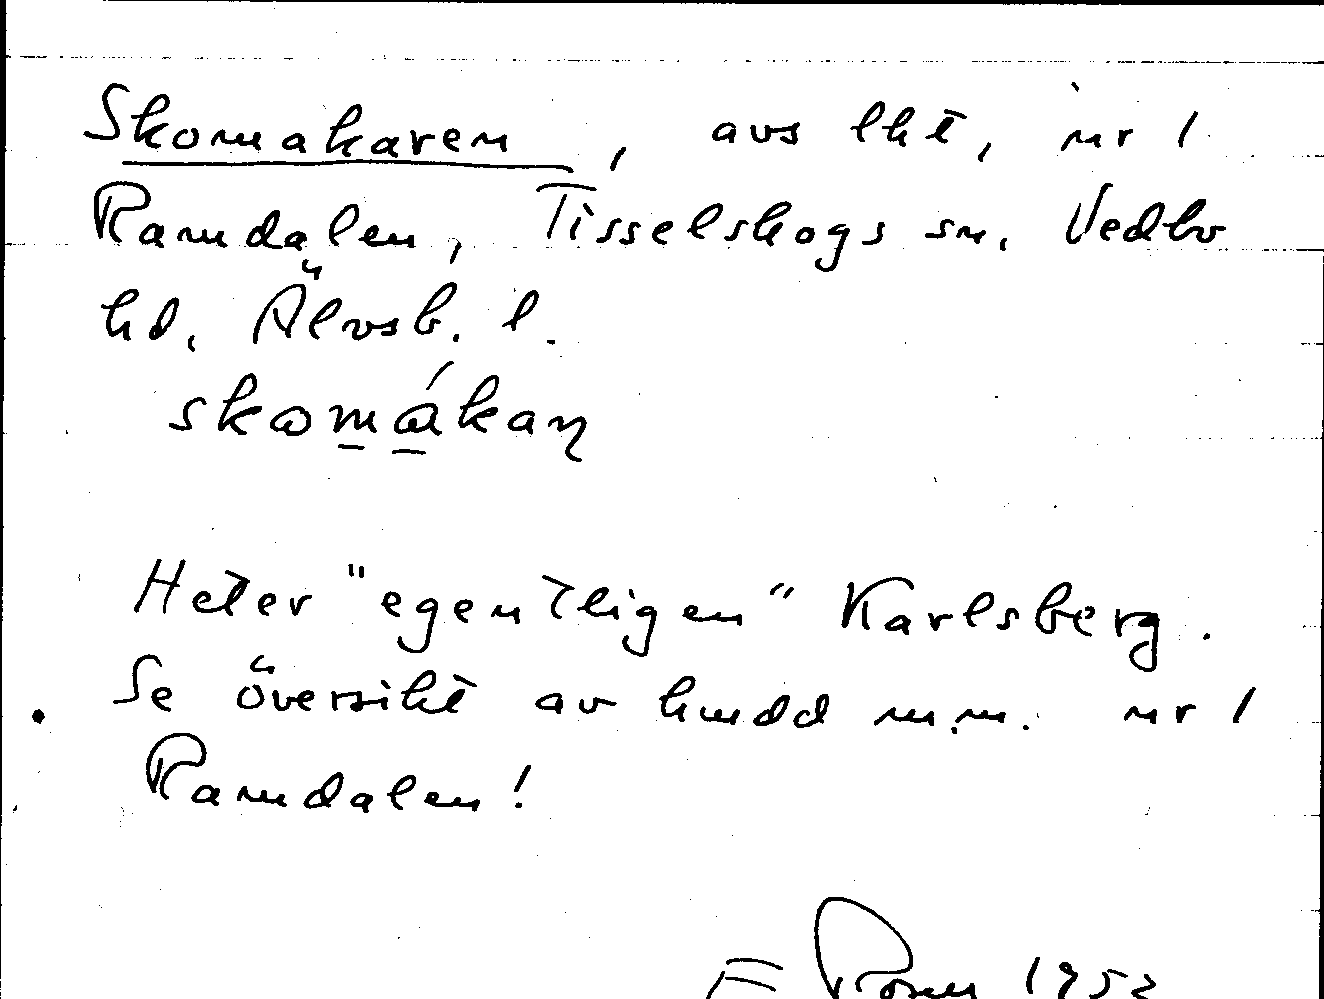 Skomakaren, avs lht, nr 1
Ramdalen, Tisselskogs sn. Vedbo
hd. Älvsb. l.
skomákaṇ
Heter "egentligen" Karlsberg.
Se översikt av hmdd m.m. nr 1
Ramdalen!
1952